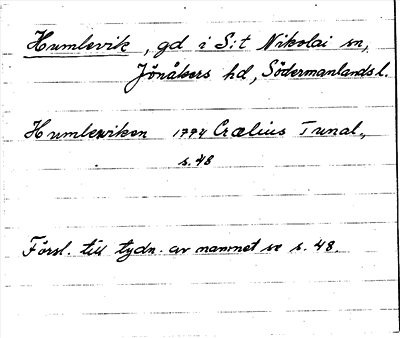 Humlevik, gd i S:t Nikolai sn,
Jönåkers hd, Södermanlands l.
Humlewiken 1774 Crælius Tunal.,
s. 48
Försl. till tydn. av namnet se s. 48.